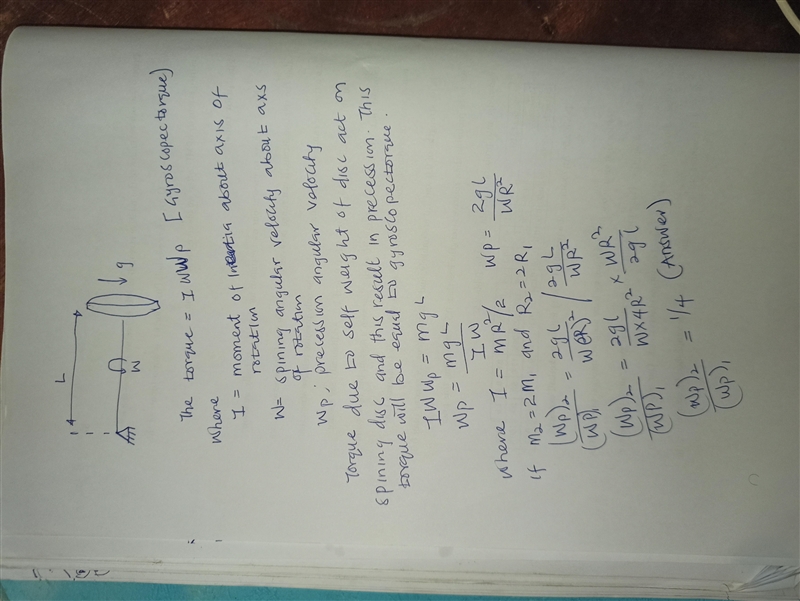 L
W
g
The torque = I W Wp [Gyroscopectorque)
where
I = moment of Inertia about axis of
rotation
W= spining angular velocity about axs
of rotation
Wp; precession angular velocity
Torque due to self weight of disc act on
spining disc and this result in precession. This
torque will be equal to gyroscopectorque.
I W Wp = mg L
Wp = mg L / I W
where I = mR²/2 Wp = 2gl / WR²
if m₂ = 2m₁ and R₂ = 2R₁
(Wp)₂ / (Wp)₁ = 2gl / W(2R)² / 2gL / WR²
(Wp)₂ / (Wp)₁ = 2gl / W×4R² × WR² / 2gl
(Wp)₂ / (Wp)₁ = 1/4 (Answer)